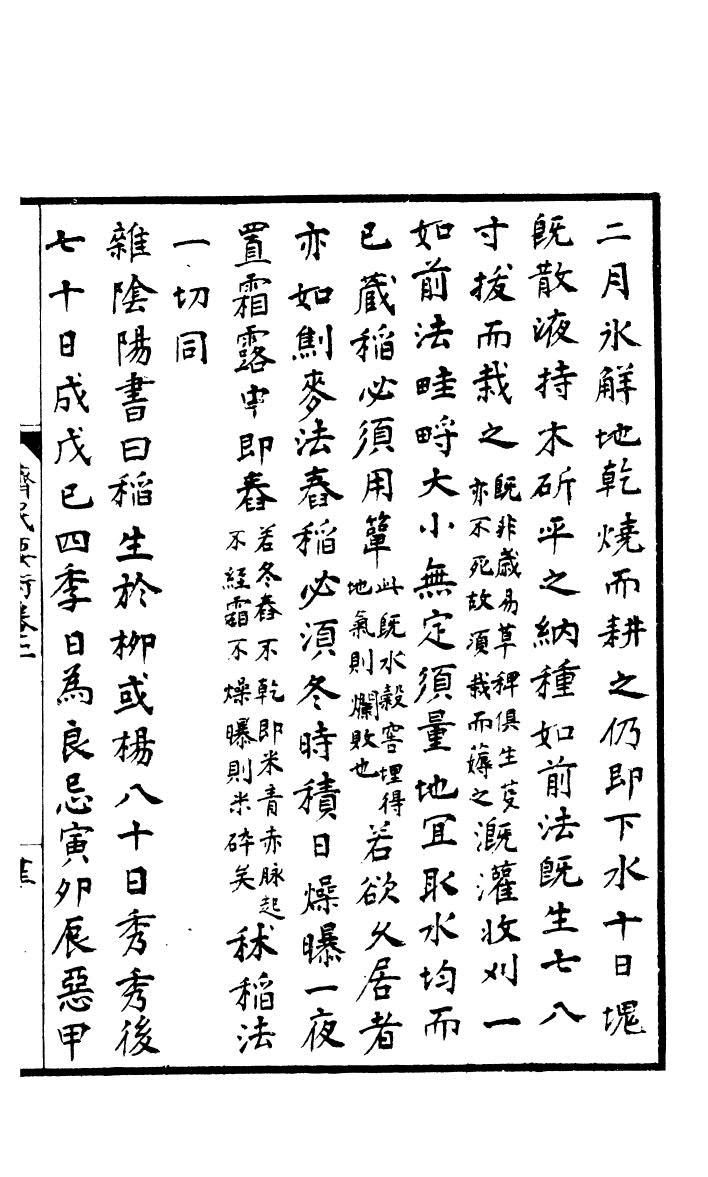 二月氷解地乾燒而耕之仍即下水十日塊
既散液持木斫平之納種如前法既生七八
寸拔而栽之既非歲易草稗俱生芟亦不死故須栽而薅之溉灌收刈一
如前法畦畤大小無定須量地冝取水均而
已藏稻必須用簞此既水穀窖埋得地氣則爛敗也若欲久居者
亦如劁麥法舂稻必須冬時積日燥曝一夜
置霜露中即舂若冬舂不乾即米青赤脉起不經霜不燥曝則米碎矣秫稻法
一切同
雜隂陽書曰稻生於柳或楊八十日秀秀後
七十日成戊己四季日為良忌寅卯辰惡甲
齊民要術卷二